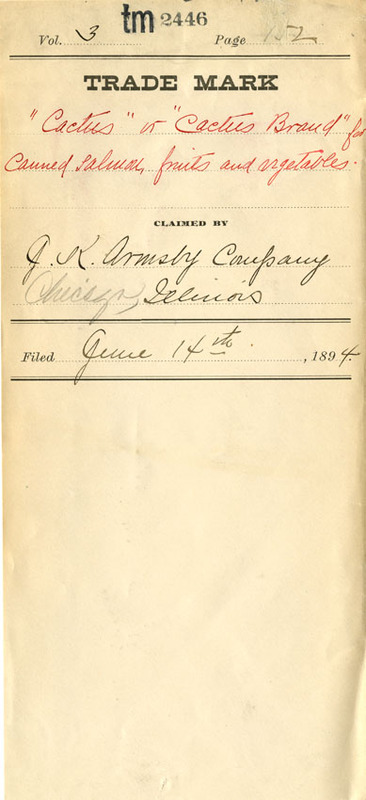 tm 2446
Vol. 3 Page 152
TRADE MARK
"Cactus" or "Cactus Brand" for
Canned Salmon, fruits and vegetables.
CLAIMED BY
J. K. Armsby Company
Chicago, Illinois
Filed June 14th, 1894.